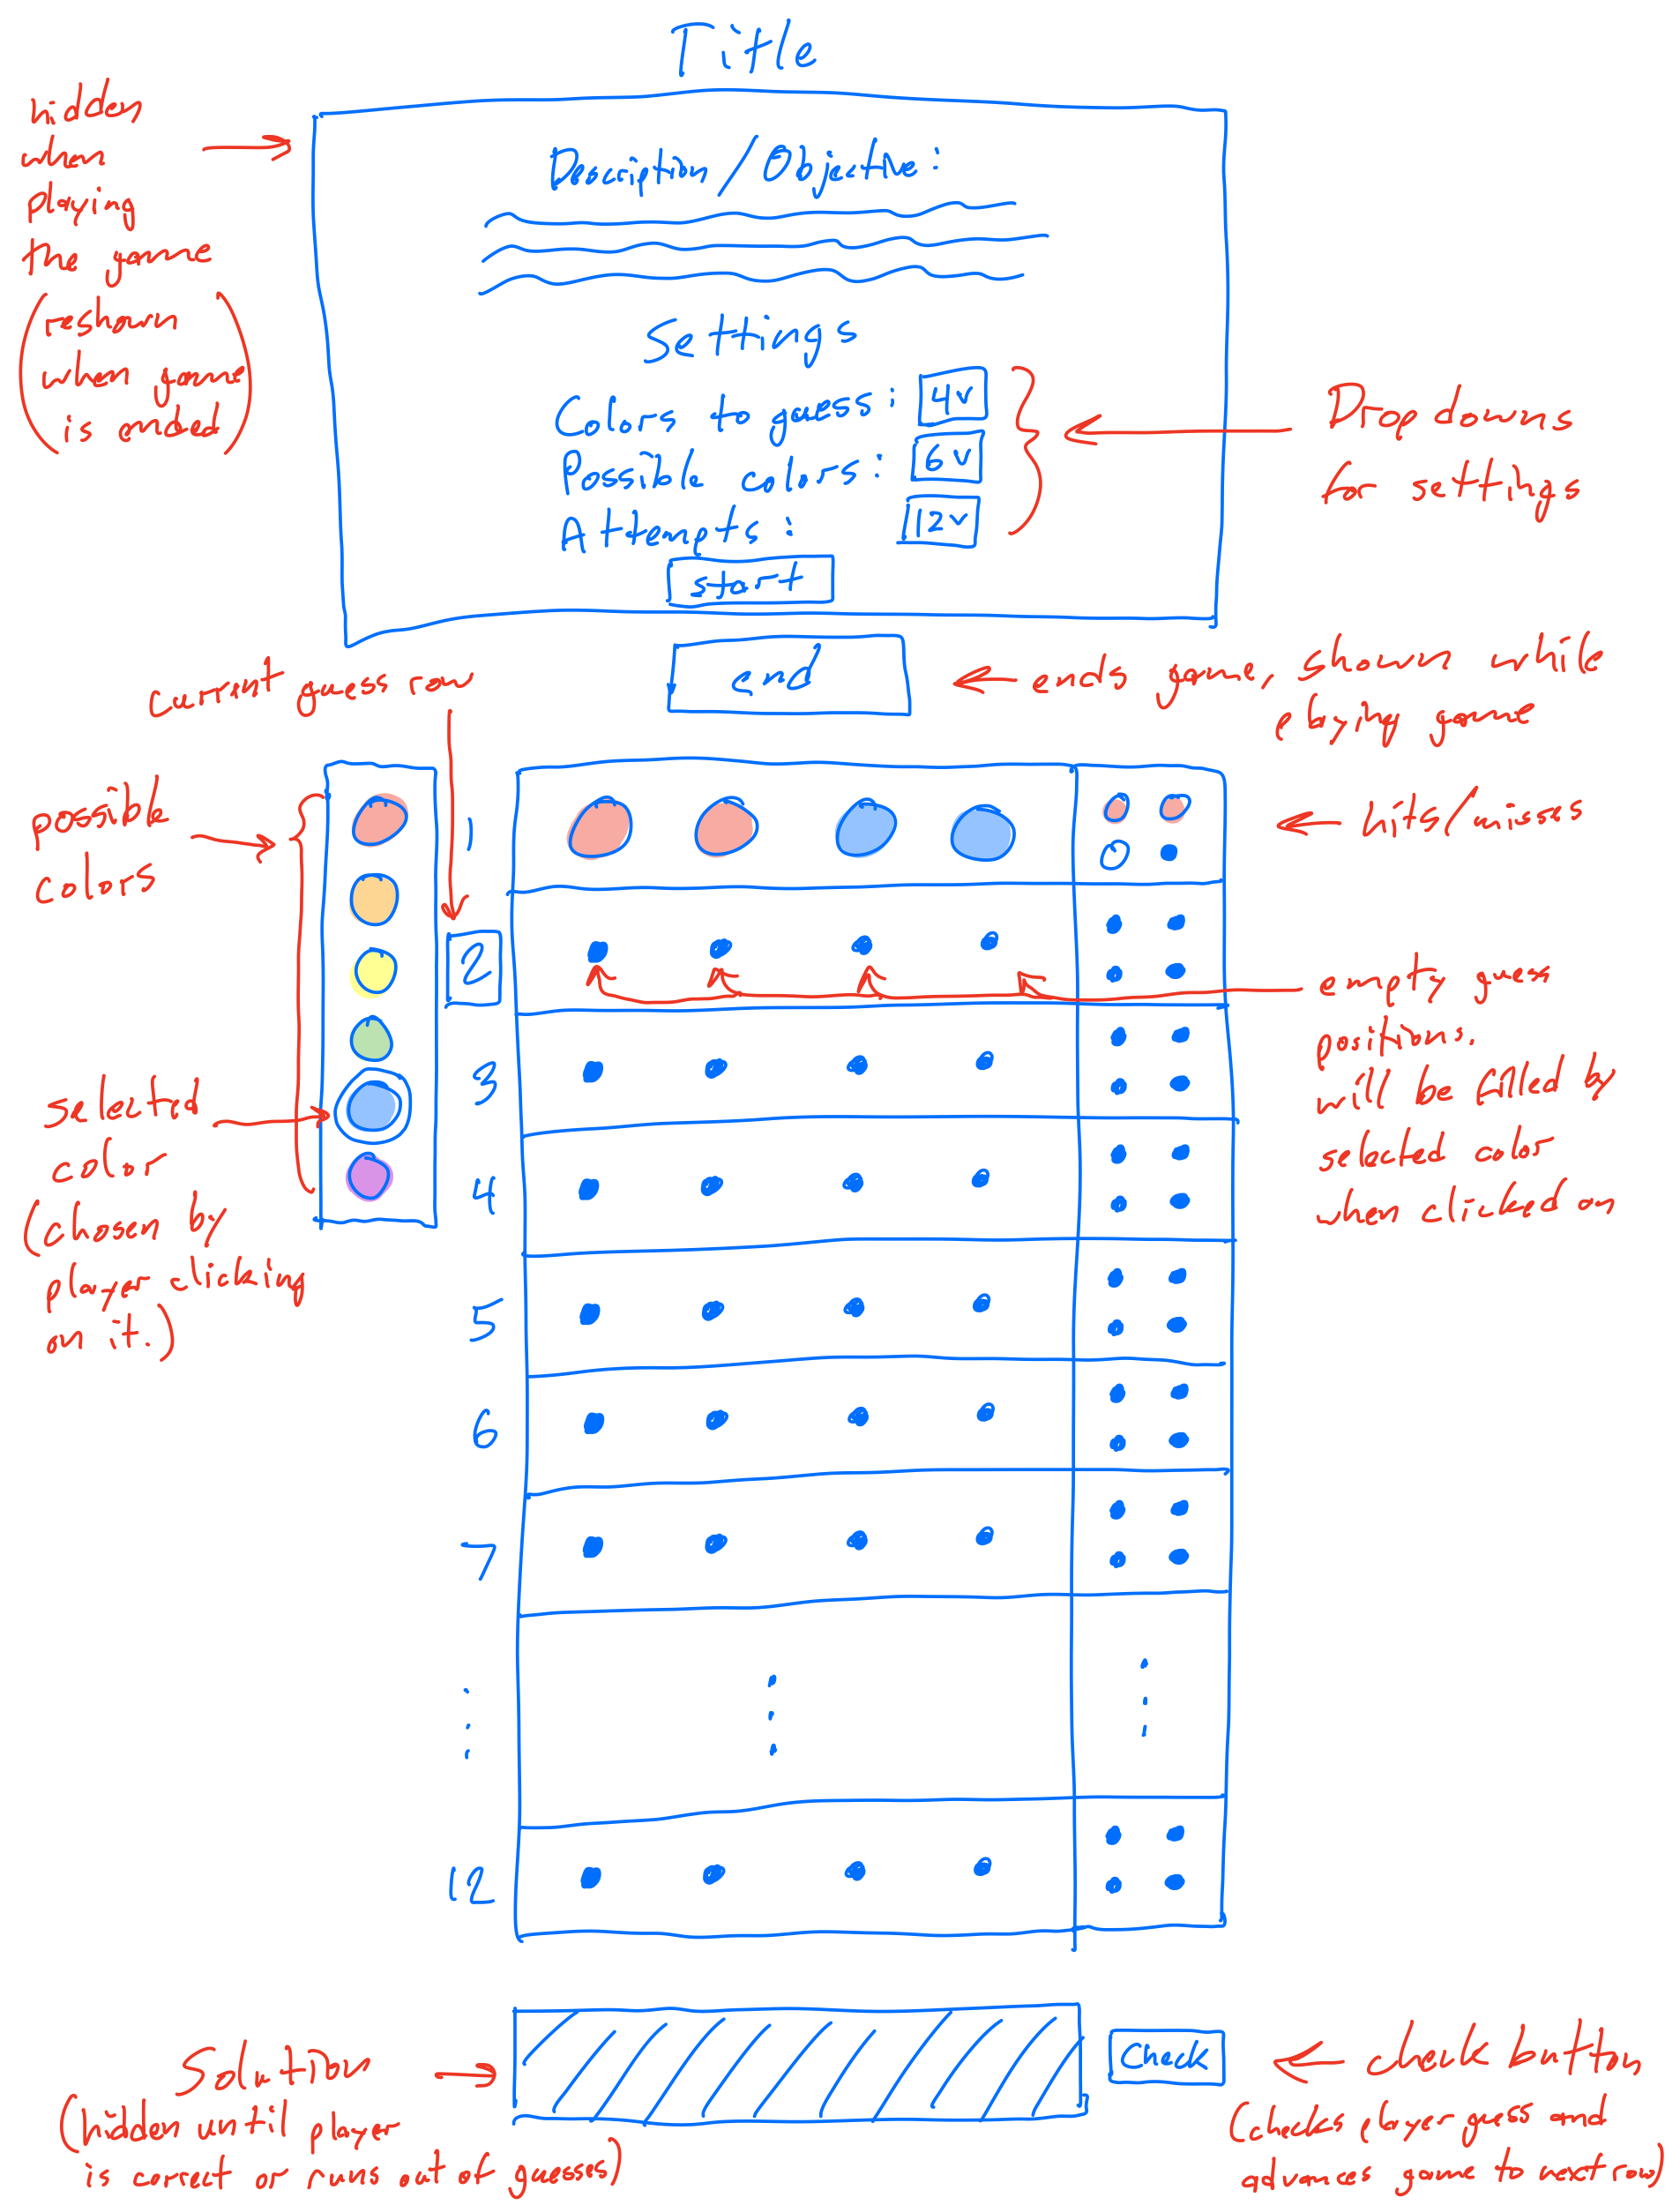 Title
hidden
when
playing
the game
(reshown
when game
is ended)
Description/Objective:
Settings
Colors to guess: 4v
Possible colors: 6v
Attempts: 12v
start
Drop downs
for settings
end
ends game, shown while
playing game
current guess row
possible
colors
1
hits/misses
2
empty guess
positions.
will be filled by
selected color
when clicked on
3
selected
color
(chosen by
player clicking
on it.)
4
5
6
7
12
Solution
(hidden until player
is correct or runs out of guesses)
Check
check button
(checks player guess and
advances game to next row)